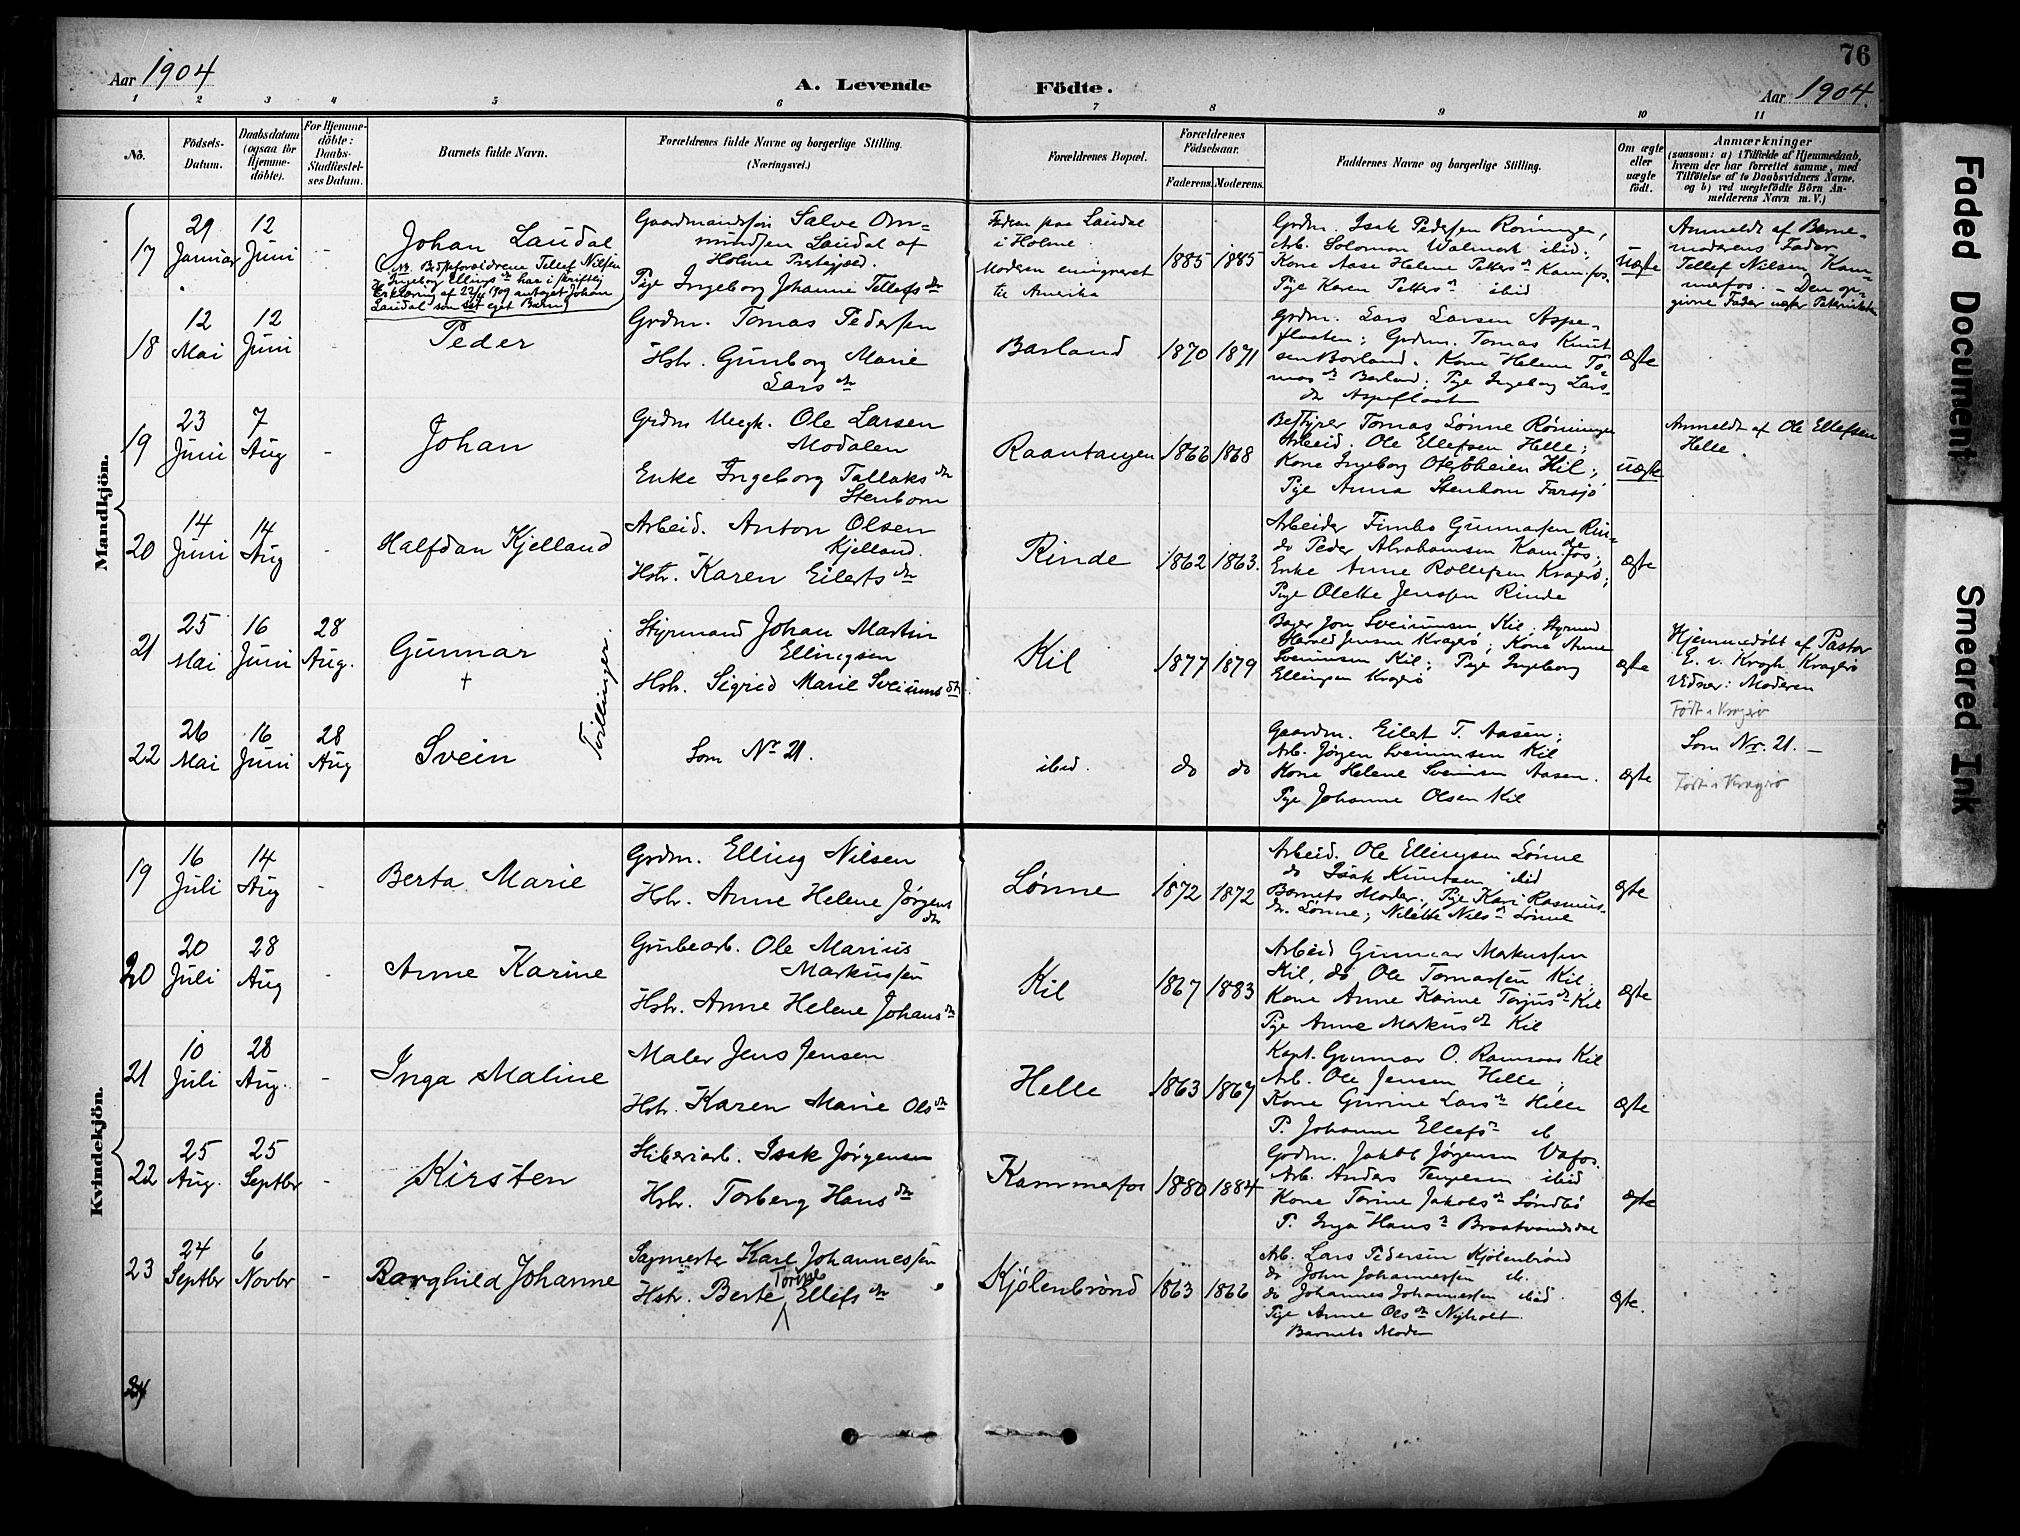 76
Aar 1904
A. Levende Födte.
Aar 1904.
1 2 3 4 5 6 7 8 9 10 11
No.
Födsels-
Datum.
Daabsdatum
(ogsaa for
Hjemme-
döbte).
For Hjemme-
döbte:
Daabs-
Stadfæstel-
ses Datum.
Barnets fulde Navn.
Forældrenes fulde Navne og borgerlige Stilling.
(Næringsvei.)
Forældrenes Bopæl.
Forældrenes
Födselsaar.
Faderens. Moderens.
Faddernes Navne og borgerlige Stilling.
Om ægte
eller
uægte
födt.
Anmærkninger
(saasom: a) i Tilfælde af Hjemmedaab,
hvem der har forrettet samme, med
Tilföielse af to Daabsvidners Navne.
og b) ved uægtefödte Börn An-
melderens Navn m. V.)
Mandkjön.
17
29
Januar
12
Juni
-
Johan Laudal
(NB. Bedsteforældrene Tellef Nilsen
& Ingeborg Ellings dr har i skriftlig
Erklæring af 22/4 1909 antaget Johan
Laudal som sit eget Barn)
Gaardmandssøn Salve Om-
mundsen Laudal af
Holme Prestegjeld.
Pige Ingeborg Johanne Tellefs dtr
Fadren paa Laudal
i Holme
Modren emigreret
til Amerika
1885 1885
Grdm. Isak Pedersen Rønningen,
Arb. Solomon Walmark ibid;
Kone Aase Helene Petters dr Kamfos.
Pige Karen Petters dr ibid
Uægte
Anmeldt af Barne-
moderens Fader
Tellef Nilsen, Kam-
merfos. - Den op-
givne Fader
18
12
Mai
12
Juni
-
Peder
Grdm. Tomas Pedersen
Hstr. Gunborg Marie
Lars dtr
Barland
1870 1871
Grdm. Lars Larsen Aspe-
flaaten; Grdm. Tomas Knut
sen Barland. Kone Helene To-
mas dr Barland; Pige Ingeborg Lars-
dr Aspeflaaten
ægte
19
23
Juni
7
Aug
-
Johan
Grdm Ungk. Ole Larsen
Modalen
Enke Ingeborg Tallaks dtr
Stenbom
Raantangen
1866 1868
Bestyrer Tomas Lønne Rønningen
Arbeid. Ole Ellefsen Helle;
Kone Ingeborg Oterbheien Kil;
Pige Anna Stenbom Farsjø
uægte
Anmeldt af Ole Ellefsen
Helle.
20
14
Juni
14
Aug
-
Halfdan Kjelland
Arbeid. Anton Olsen
Kjelland.
Hstr. Karen Eilerts dtr
Rinde
1862 1863.
Arbeider Gunnarsen Rin-
de
do Peder Abrahamsen Kamfos;
Enke Anne Rollefsen Kragerø;
Pige Olette Jenssen Rinde
ægte
21
25
Mai
16
Juni
28
Aug.
Gunnar
+
Tvillinger
Styrmand Johan Martin
Ellingsen
Hstr. Sigrid Marie Sveinungs dtr
Kil
1877 1879
Jon Sveinunsen Kil. Styrmd
Harald Jensen Kragerø; Kone Anne
Sveinunsen Kil; Pige Ingeborg
Ellingsen Kragerø
ægte
Hjemmedøbt af Pastor
E. v. Krogh Kragerø
Vidner: Moderen
Født i Kragerø
22
26
Mai
16
Juni
28
Aug
Svein
Som Nr 21.
ibid.
do do
Gaardm. Eilert T. Aasen;
Arb. Jørgen Sveinunsen Kil
Kone Helene Sveinsen Aasen.
Pige Johanne Olsen Kil
ægte
Som Nr. 21. -
Født i Kragerø
Kvindekjön.
19
16
Juli
14
Aug
-
Berta Marie
Grdm. Elling Nilsen
Hstr. Anne Helene Jørgens
dtr
Lønne
1872 1872
Arbeid. Ole Ellingsen Lønne
do Isak Knutsen ibid
Barnets Moder; Pige Kari Rasmus-
dr. Lønne; Nilette Nils dr Lønne
ægte
20
20
Juli
28
Aug
-
Anne Karine
Grubearb. Ole Marius
Markussen
Hstr. Anne Helene Johans dtr
Kil
1867 1883
Arbeid Gunnar Markussen
Kil, do Ole Tomassen Kil;
Kone Anne Karine Torjus dr Kil
Pige Anne Markus dr Kil
ægte
21
10
Juli
28
Aug.
-
Inga Maline
Maler Jens Jensen
Hstr. Karen Marie Ols dtr
Helle
1863 1867
Kapt. Gunnar O. Ramsaas Kil
Arb. Ole Jensen Helle;
Kone Gurine Lars dr Helle
P. Johanne Ellefs dr ib
ægte
22
25
Aug.
25
Septbr
-
Kirsten
Sliberiarb. Isak Jørgensen
Hstr. Torberg Hans dtr
Kammerfos
1880 1884
Grdm. Jakob Jørgensen Vafos.
Arb. Anders ibid
Kone Torine Jakobs dr Søndbø
P. Inga Hans dr Braatvandsdal
ægte
23
24
Septbr
6
Novbr
-
Borghild Johanne
Sagmester Karl Johannessen
Torine
Hstr. Berte Ellefs dtr
Kjølenbrønd
1863 1866
Arb. Lars Pedersen Kjølenbrønd
do John Johannessen ib.
do Johannes Johannessen ibid.
Pige Anne Ols dr Nyholt.
Barnets Moder
ægte.
24
Faded Document
Smeared Ink